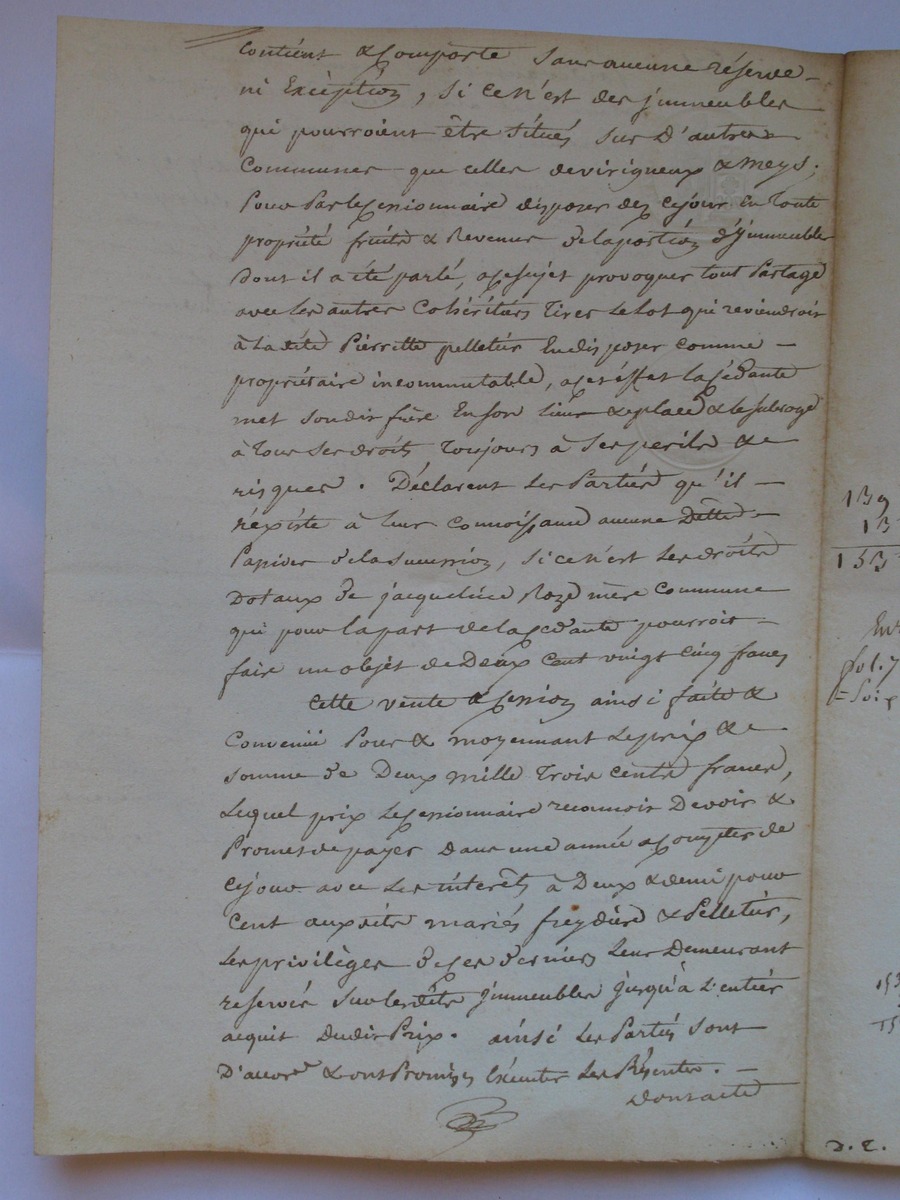 contient & comporte sans aucune réserve -
ni Exception, si ce n'est des jmmeubles
qui pourroient être situés sur d'autres
communes que celles de virigneux & meys;
Pour Par le Cessionnaire disposer dez ce jour En toute
propriété fruits & Revenus de la portion d'jmmeubles
dont il a été parlé, a ce sujet provoquer tout Partage
avec les autres Cohéritiers tirer le Lot qui reviendroit
à la dite Pierrette pelletier En disposer comme -
propriétaire incommutable, a ces éffet la Cédante
met son dit frère En son lieu & place & le subroge
à tous ses droits toujours à ses perils &
risques. Déclarent les Parties qu'il -
n'éxiste à leur connoissance aucune Dette -
Passive de la succession, si ce n'est les droits
Dotaux de jacqueline Roze mère commune
qui pour la part de la cédante pourroit -
faire un objet de Deux cent vingt cinq francs
Cette vente & cession ainsi faite &
convenüe Pour & moyennant le prix &
somme de Deux mille trois cents francs,
Lequel prix le Cessionnaire reconnoit Devoir &
Promet de payer dans une année a Compter de
ce jour avec les interêts à Deux & demi pour
Cent aux dits mariés freydière & Pelletier,
les privilèges de ces derniers leur Demeurant
reservés sur les dits jmmeubles jusqu'à l'entier
acquit du dit Prix. ainsi les Parties sont
D'accord & ont Promis Exécuter les Présentes. -
dont acte
139
13
153
Enr
fol. 7
= Soix
153
15
D. E.